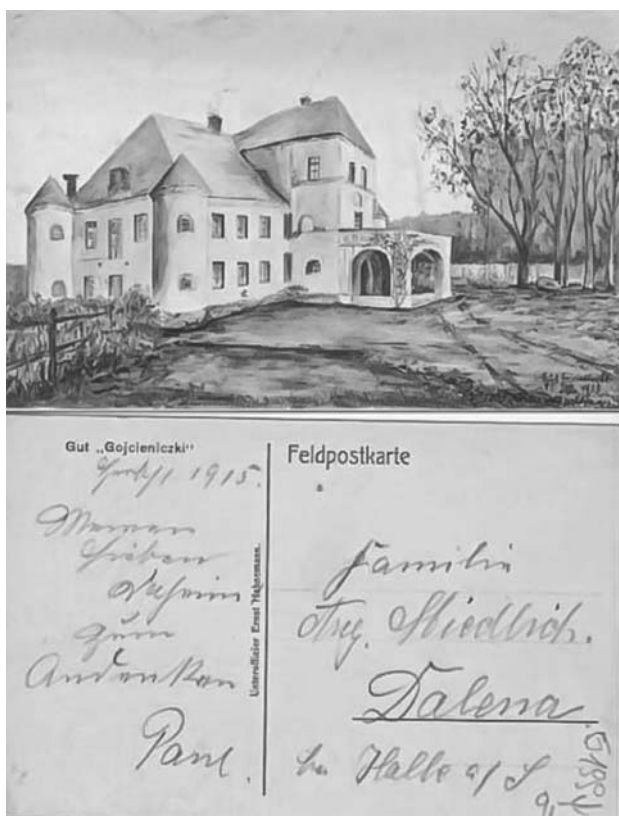 Gut „Gojcieniczki“
Herbst 1915.
Meinen
Lieben
Daheim
zum
Andenken
Paul.
Unteroffizier Ernst Hahnemann.
Feldpostkarte
Familie
Aug.
Dalena
bei Halle a/S